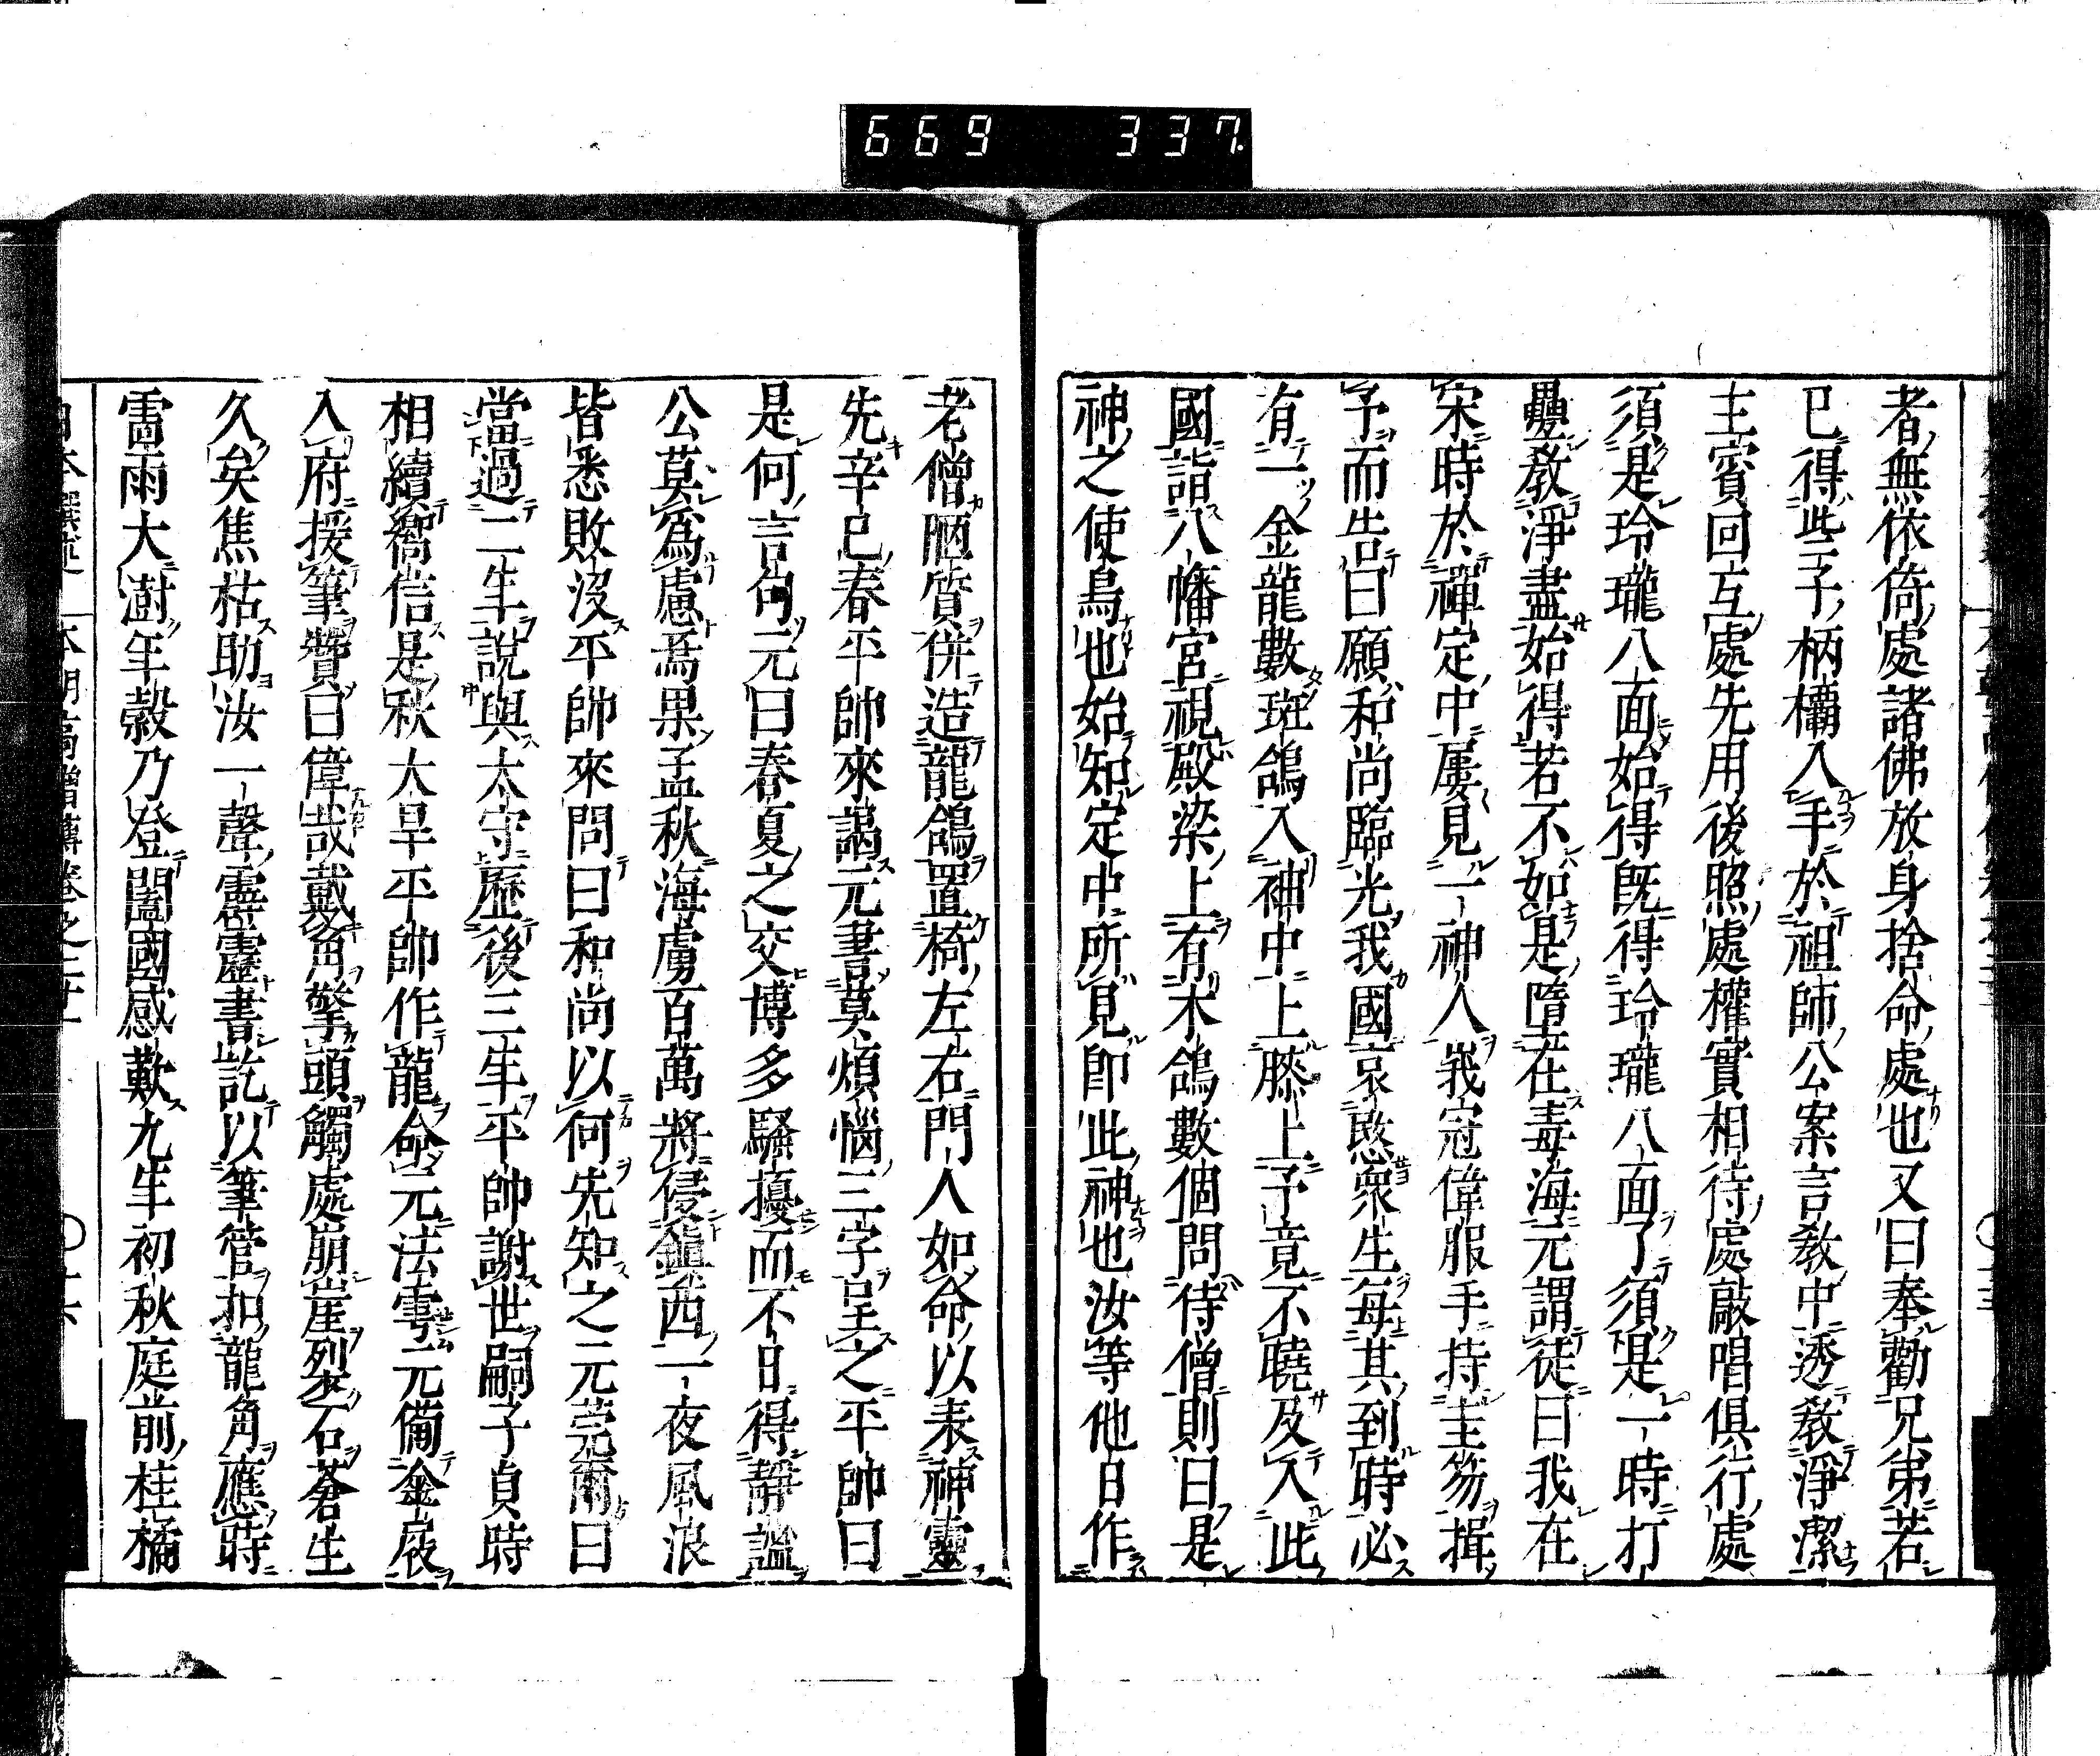 669 337
者無依倚處諸佛放身捨命處也又曰奉勸兄弟若
已得些子柄欛入手於祖師公案言教中透教淨潔
主賓回互處先用後照處權實相待處敲唱俱行處
須是玲瓏八面始得既得玲瓏八面了須是一時打
疊教淨盡始得若不如是墮在毒海元謂徒曰我在
宋時於禪定中屢見一神人峩冠偉服手持圭笏揖
予而告曰願和尚臨光我國哀愍衆生每其到時必
有一金龍數斑鴿入神中上膝上予竟不曉及入此
國詣八幡宮視殿梁上有木鴿數個問待僧則曰是
神之使鳥也始知定中所見即此神也汝等他日作
老僧陋質併造龍鴿置椅左右門人如命以表神靈
先辛巳春平帥來謁元書莫煩惱三字呈之平帥曰
是何言句元曰春夏之交博多騷擾而不日得靜謐
公莫爲慮焉果孟秋海虜百萬將侵鎭西一夜風浪
皆悉敗没平帥來問曰和尚以何先知之元莞爾曰
當過二年說與太守歷後三年平帥謝世嗣子貞時
相續嚮信是秋大旱平帥作龍命元法雩元備金展
入府援筆贊曰偉哉戴角擎頭觸處崩崖烈石蒼生
久矣焦枯助汝一聲霹靂書訖以筆管扣龍角應時
雷雨大澍年穀乃登闔國感歎九年初秋庭前桂橘
本朝高僧傳卷之二十一